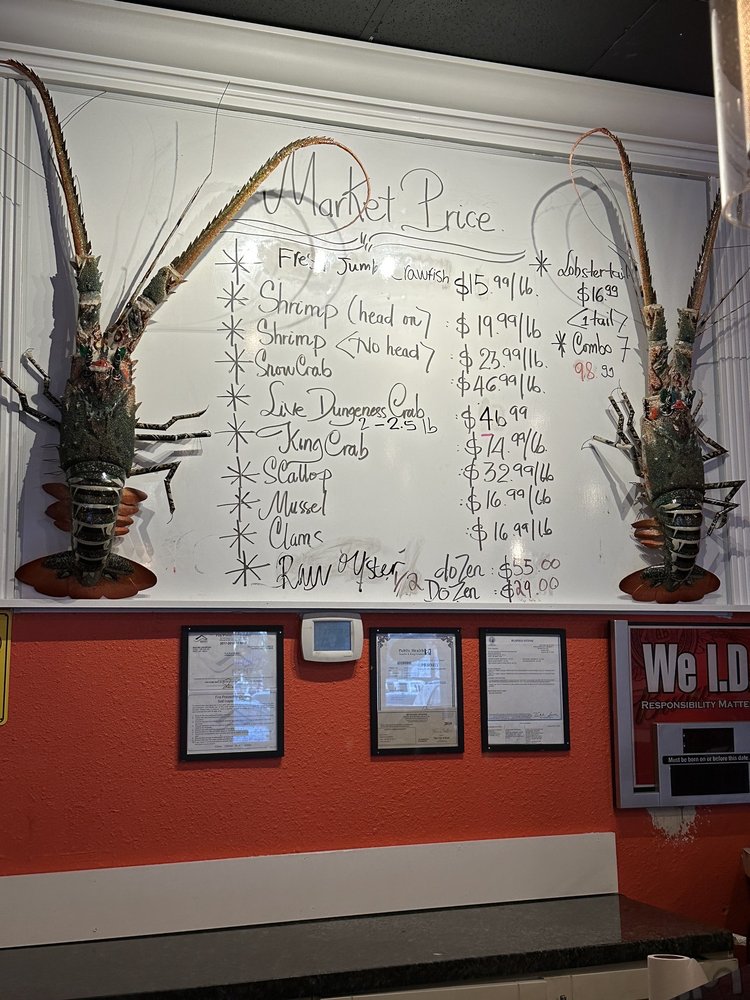 Market Price
* Fresh Jumbo Crawfish $15.99/lb.
* Shrimp (head on) : $19.99/lb
* Shrimp <No head> : $23.99/lb
* Snow Crab $46.99/lb.
* Live Dungeness Crab : $46.99
2-2.5 lb
* King Crab : $74.99/lb
* Scallop : $32.99/lb
* Mussel : $16.99/lb
* Clams : $16.99/lb
* Raw Oyster dozen : $55.00
1/2 Dozen : $29.00
* Lobster tail
$16.99
<1 tail>
* Combo 7
98.99
Public Health
We I.D
RESPONSIBILITY MATTE
Must be born on or before this date